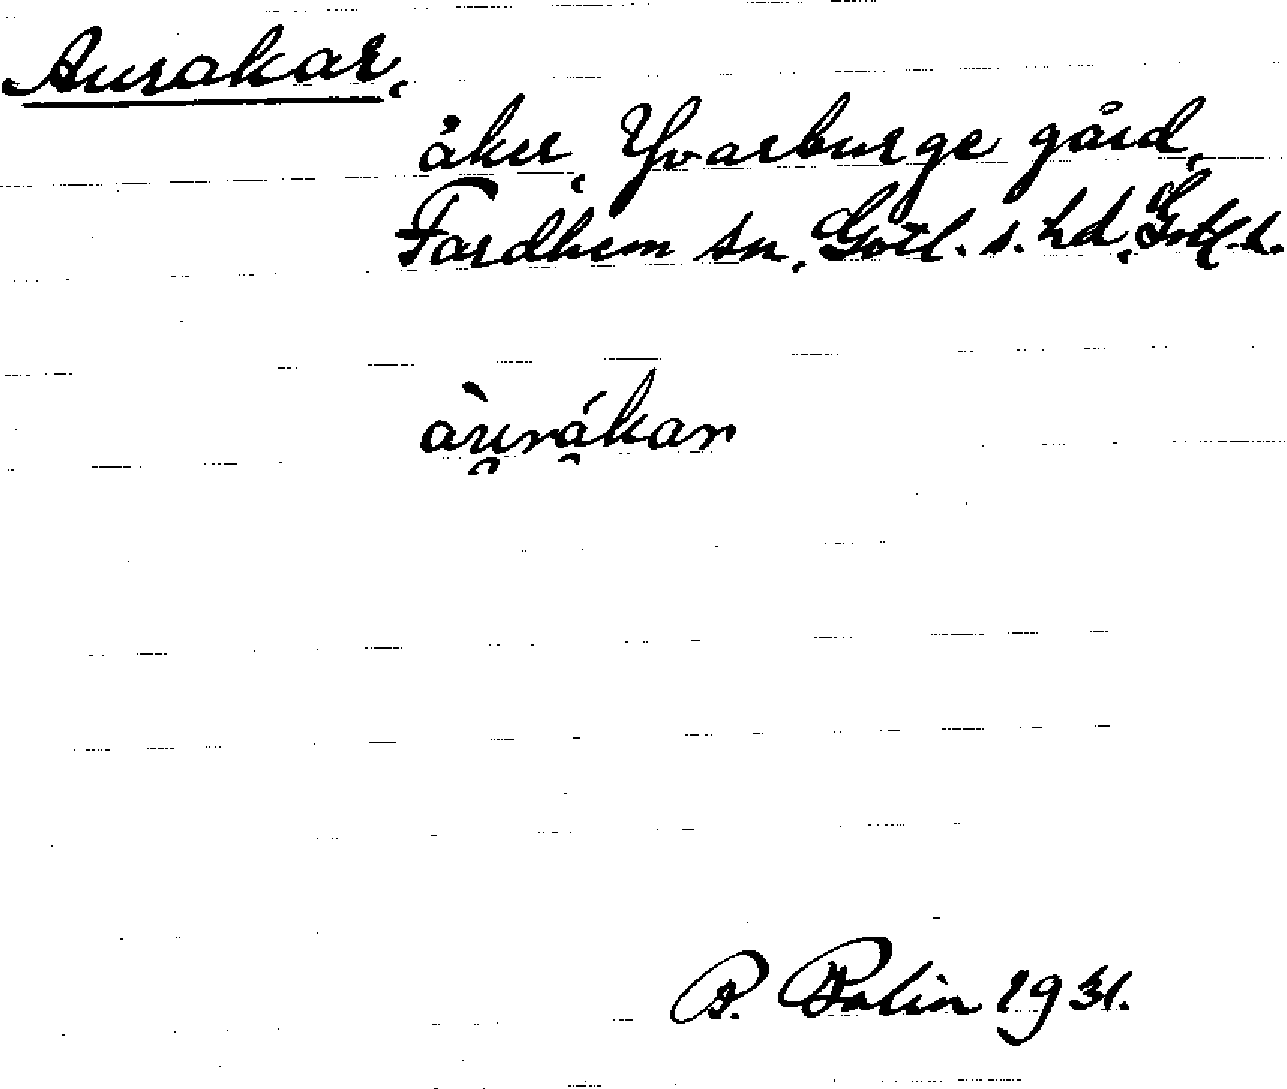 Aurakar,
åker, Yvarburge gård,
Fardhem sn, Gotl. s. hd, Gotl. l.
àu̯rá̯kar
B. Bolin 1931.